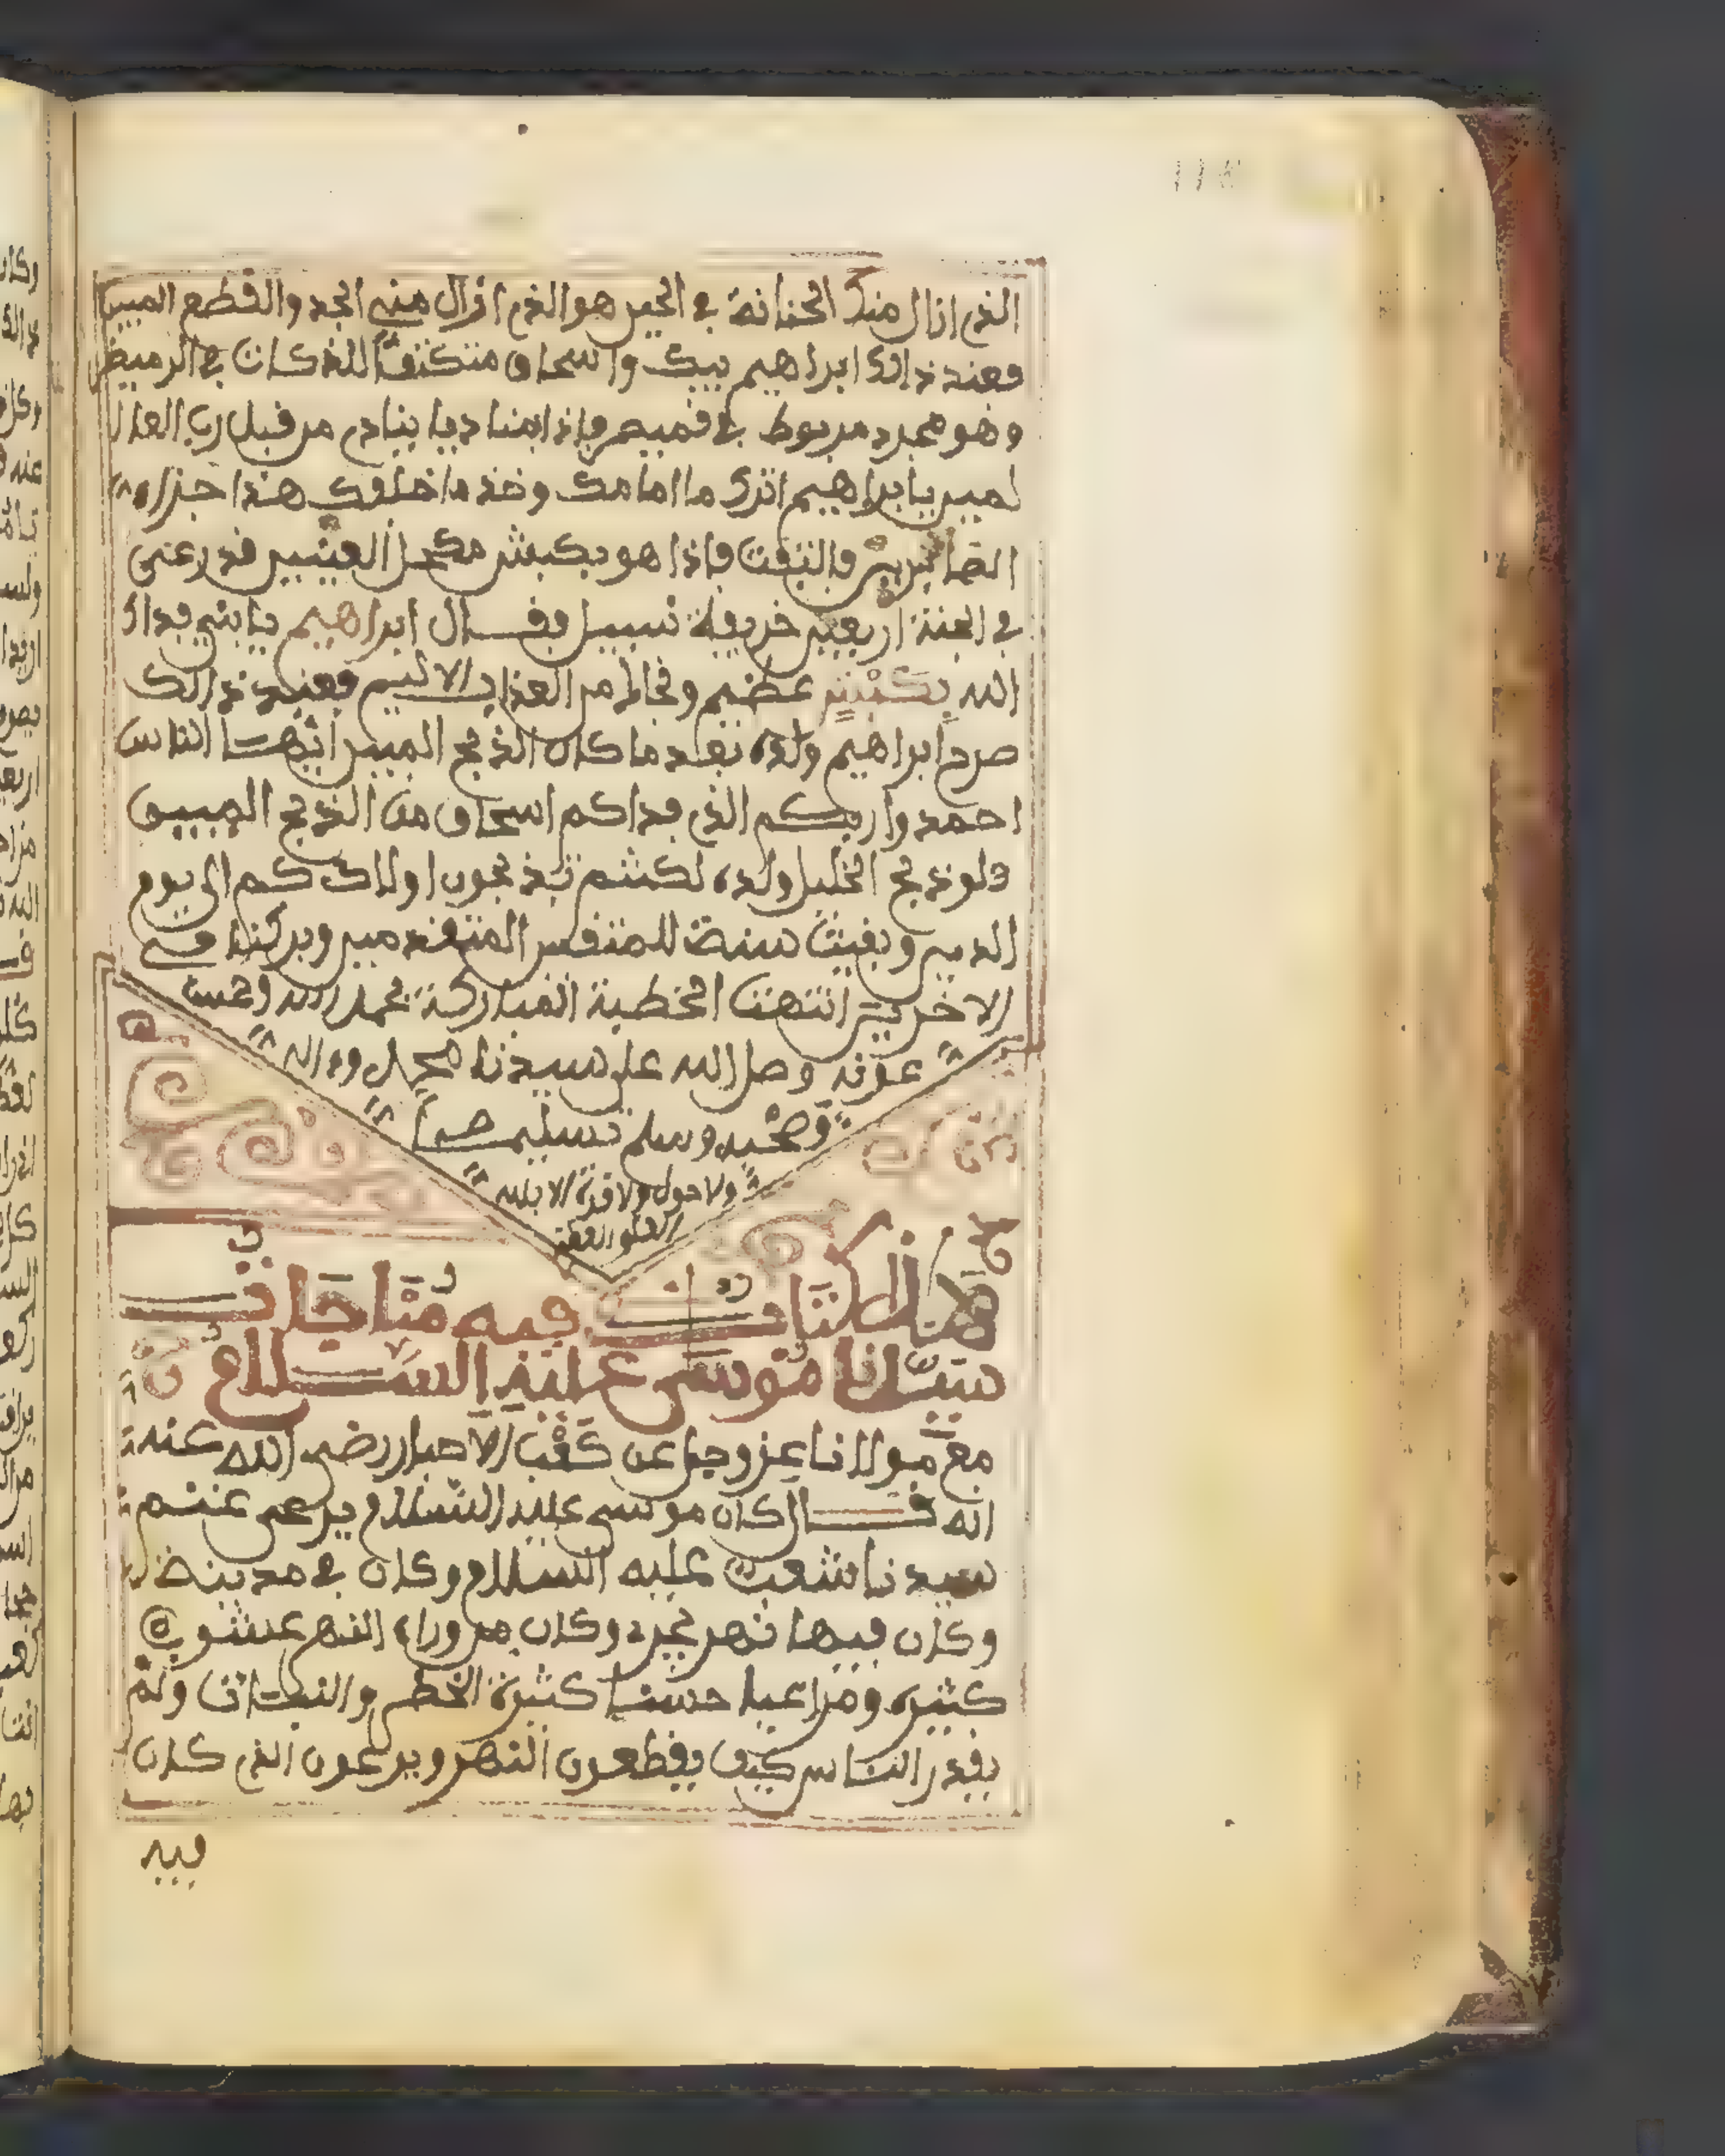 الذي ازال منك الحنانة في الحين هو الذي ازال مني الجد والقطع المبين
فعند ذالك ابراهيم يبك واسحاق متكتفا للذكان في الرميض
وهو مجرد مربوط في قميص فاذا بمناديا ينادي من قبل رب العا
لمين يا ابراهيم اترك ما امامك وخذ ما خلفك هذا جزاء
الصابرين فالتفت فاذا هو بكبش مكحل العينين قد رعى
في الجنة اربعين خريفة تسبيل فقال ابراهيم يا بني فداك
الله بكبش عضيم ونجاك من العذاب الاليم فعند ذالك
صرح ابراهيم ولده بعد ما كان الذبح المبين ايها الناس
احمدوا ربكم الذي فداكم اسحاق من الذبح المبين
ولو ذبح الخليل ولده لكنتم تذبحون اولادكم الى يوم
الدين وبقيت سنة للمتقين المتقدمين وبركتا في
الاخرين انتهت الخطبة المباركة بحمد الله وحسن
عونه وصل الله على سيدنا محمد وءاله
وصحبه وسلم تسليما
ولا حول ولا قوة الا بالله
العلي العظيم
هذا الكتاب فيه مناجات
سيدنا موسى عليه السلام
مع مولانا عز وجل عن كعب الاحبار رضي الله عنه
انه قال كان موسى عليه السلام يرعى غنم
سيدنا شعيب عليه السلام وكان في مدينة
وكان فيها نهر يجرد وكان من وراء النهر عشوب
كثيرة ومراعيا حسنا كثيرة الخضر والنبات ولم
يقدر الناس كيف يقطعون النهر ويرعون الذي كان
فيه